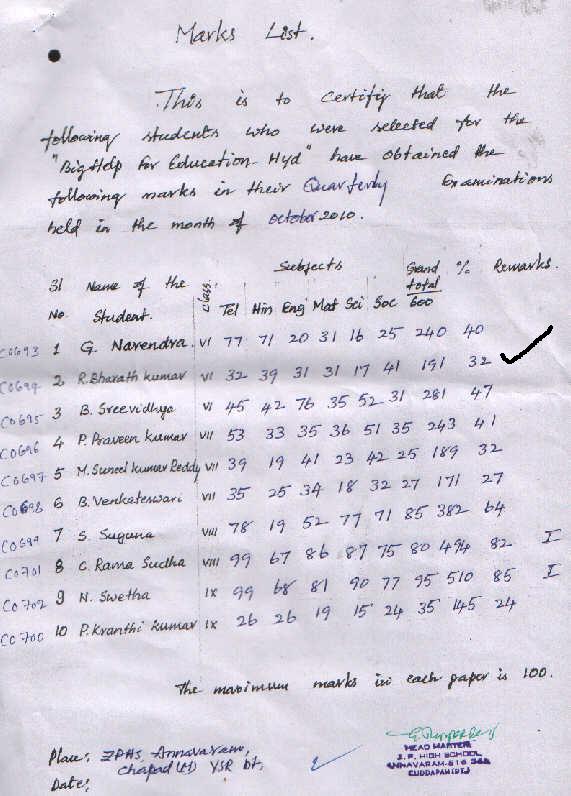 Marks List.
This is to certify that the
following students who were selected for the
"Big Help For Education - Hyd" have obtained the
following marks in their Quarterly Examinations
held in the month of october 2010.
Sl No. Name of the Student. Class. Subjects Tel Hin Eng Mat Sci Soc Grand total 600 % Remarks.
C0693 1 G. Narendra VI 77 71 20 31 16 25 240 40
C0694 2 R. Bharath kumar VI 32 39 31 31 17 41 191 32 ✓
C0695 3 B. Sreevidhya VI 45 42 76 35 52 31 281 47
C0696 4 P. Praveen kumar VII 53 33 35 36 51 35 243 41
C0697 5 M. Suneel kumar Reddy VII 39 19 41 23 42 25 189 32
C0698 6 B. Venkateswari VII 35 25 34 18 32 27 171 27
C0699 7 S. Suguna VIII 78 19 52 77 71 85 382 64
C0701 8 C. Rama Sudha VIII 99 67 86 87 75 80 494 82 I
C0702 9 N. Swetha IX 99 68 81 90 77 95 510 85 I
C0700 10 P. Kranthi kumar IX 26 26 19 15 24 35 145 24
The maximum marks in each paper is 100.
Place: ZPHS, Annavaram,
Chapad (M) YSR Dt,
Date:
HEAD MASTER
Z.P. HIGH SCHOOL
ANNAVARAM-516 362
CUDDAPAH (DT)